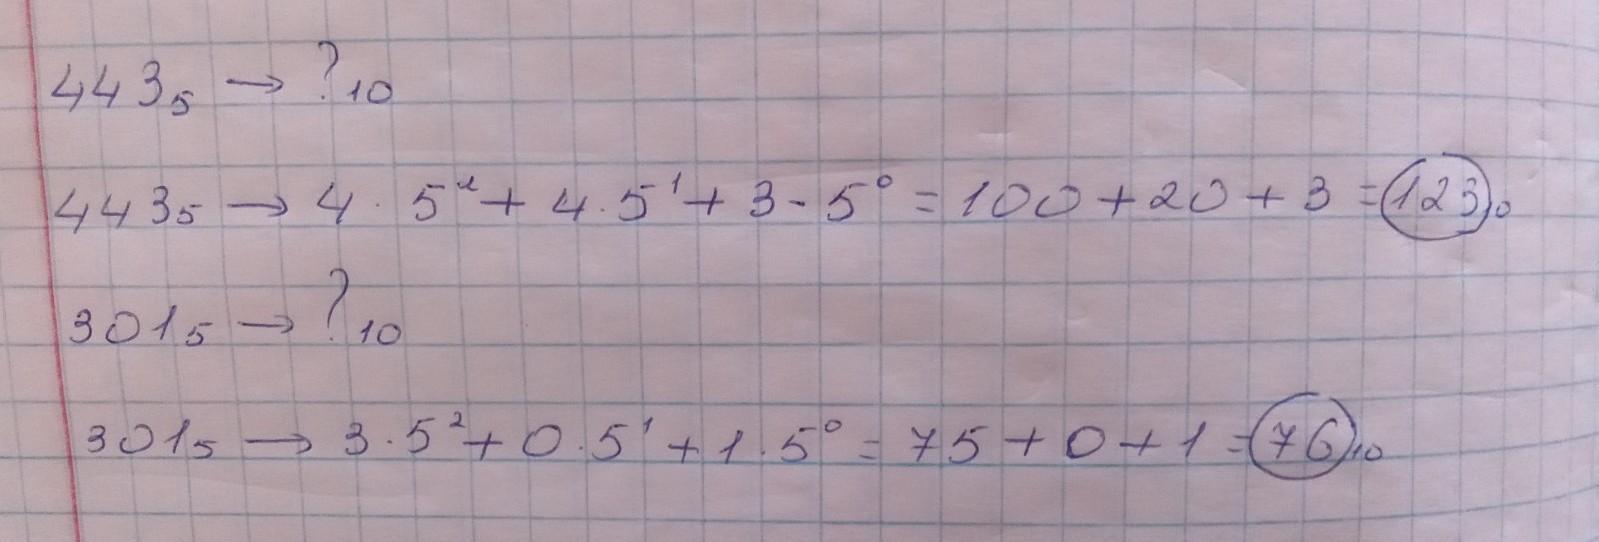 443₅ → ?₁₀
443₅ → 4 · 5² + 4 · 5¹ + 3 - 5⁰ = 100 + 20 + 3 = 123₁₀
301₅ → ?₁₀
301₅ → 3 · 5² + 0 · 5¹ + 1 · 5⁰ = 75 + 0 + 1 = 76₁₀